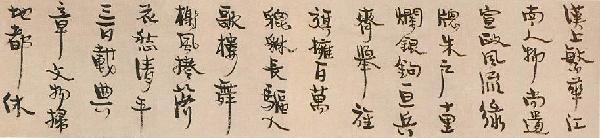 漢上繁華江
南人物尚遺
宣政風流綠
窗朱戶十里
爛銀鉤一旦兵
齊舉旌
旗擁百萬
貔貅長驅入
歌樓舞
榭風捲落
花愁清平
三百載典
章文物掃
地都休